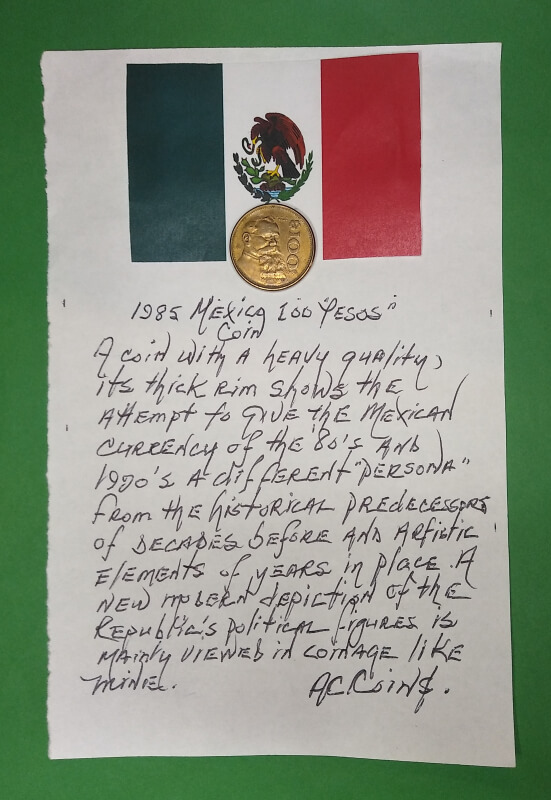 $100
1985 Mexico 100 "Pesos"
Coin
A coin with a heavy quality,
its thick rim shows the
attempt to give the Mexican
currency of the '80's and
1970's a different "persona"
from the historical predecessors
of decades before and artistic
elements of years in place. A
new modern depiction of the
Republic's political figures is
mainly viewed in coinage like
mine. A.C. Coin$.